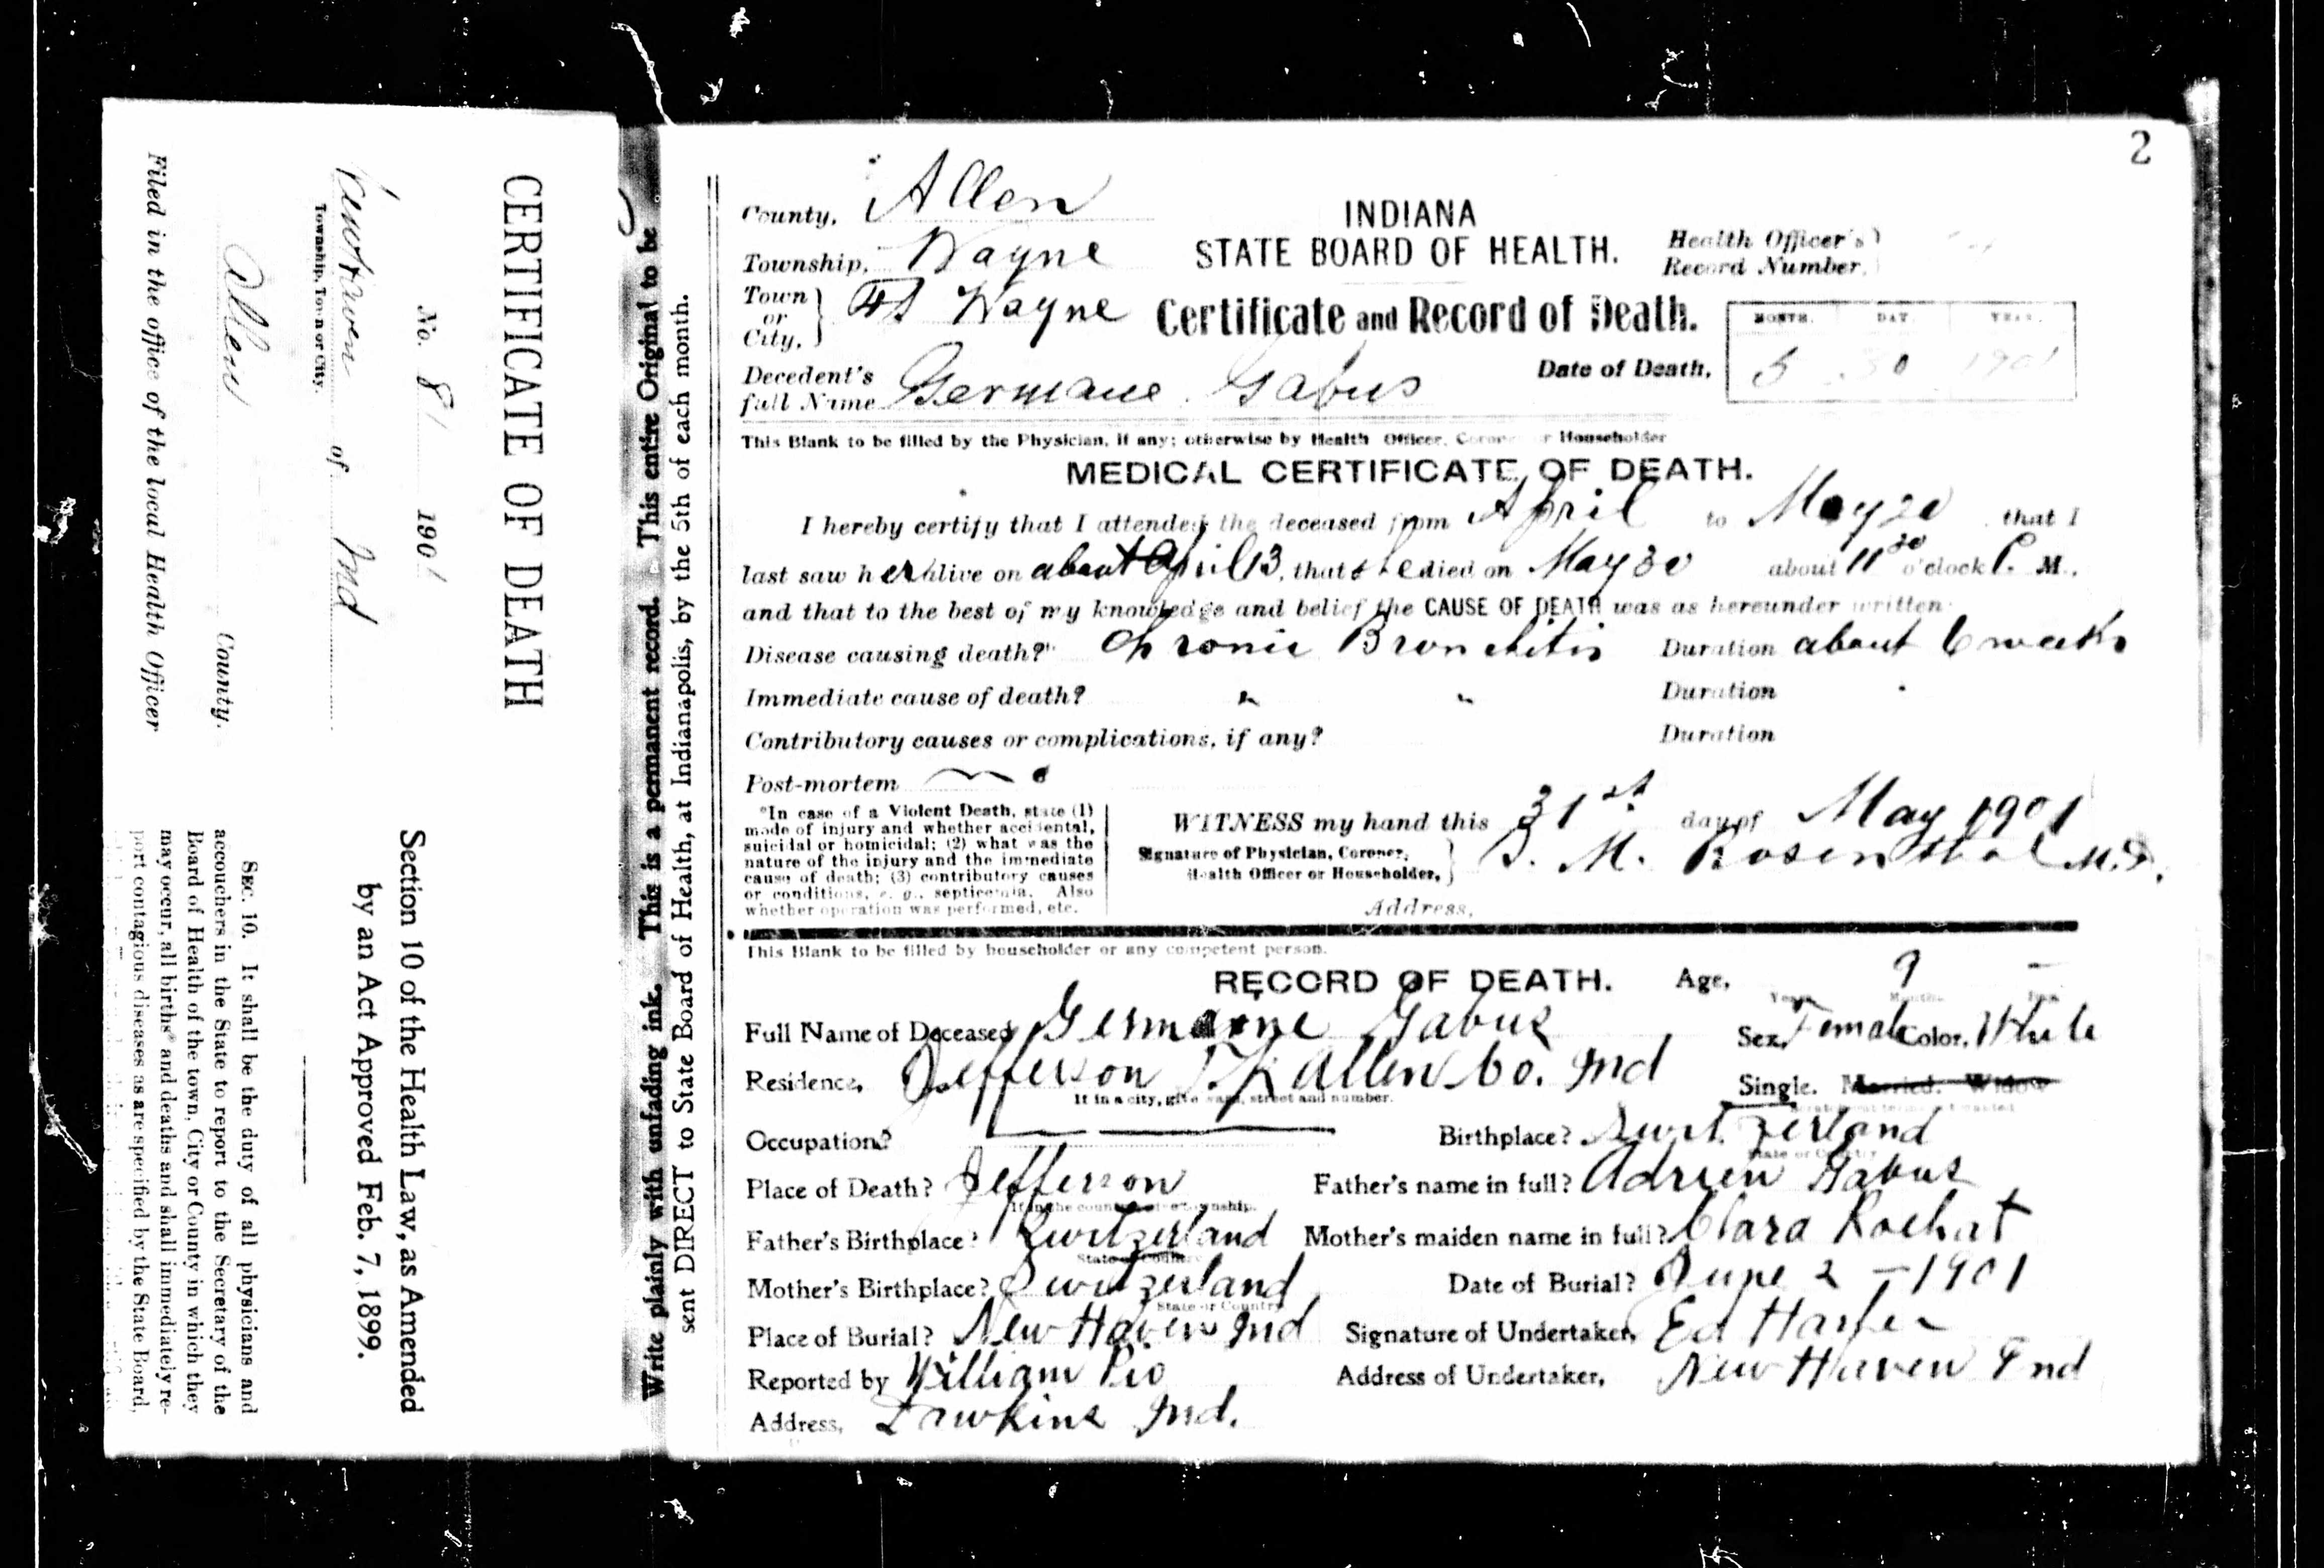 2
CERTIFICATE OF DEATH
No. 8 1901
of Ind
Township, Town or City.
Allen County.
Filed in the office of the local Health Officer
Section 10 of the Health Law, as Amended
by an Act Approved Feb. 7, 1899.
SEC. 10. It shall be the duty of all physicians and
accouchers in the State to report to the Secretary of the
Board of Health of the town, City or County in which they
may occur, all births and deaths and shall immediately re-
port contagious diseases as are specified by the State Board,
Write plainly with unfading ink. This is a permanent record. This entire Original to be
sent DIRECT to State Board of Health, at Indianapolis, by the 5th of each month.
County, Allen
INDIANA
Township, Wayne
STATE BOARD OF HEALTH.
Health Officer's
Record Number,
Town
or
City,
Ft Wayne
Certificate and Record of Death.
MONTH. DAY. YEAR.
Decedent's
full Name Germaue Gabus
Date of Death, 5 30 1901
This Blank to be filled by the Physician, if any; otherwise by Health Officer, Coroner or Householder
MEDICAL CERTIFICATE OF DEATH.
I hereby certify that I attended the deceased from April to May 30 that I
last saw her alive on about April 13, that she died on May 30 about 11 30 o'clock P. M.,
and that to the best of my knowledge and belief the CAUSE OF DEATH was as hereunder written:
Disease causing death?* Chronic Bronchitis Duration about 6 weeks
Immediate cause of death? " " Duration
Contributory causes or complications, if any? Duration
Post-mortem
*In case of a Violent Death, state (1)
mode of injury and whether accidental,
suicidal or homicidal; (2) what was the
nature of the injury and the immediate
cause of death; (3) contributory causes
or conditions, e. g., septicemia. Also
whether operation was performed, etc.
WITNESS my hand this 31st day of May 1901
Signature of Physician, Coroner,
Health Officer or Householder,
M. Rosenthal M.D.
Address,
This Blank to be filled by householder or any competent person.
RECORD OF DEATH. Age, 9 —
Years Months Days
Full Name of Deceased Germaine Gabus Sex, Female Color, White
Residence, Jefferson Allen Co. Ind Single. Married. Widow
If in a city, give ward, street and number.
Occupation? Birthplace? Switzerland
State or Country
Place of Death? Jefferson Father's name in full? Adrien Gabus
If in the country give township.
Father's Birthplace? Switzerland Mother's maiden name in full? Clara Rochat
State or Country
Mother's Birthplace? Switzerland Date of Burial? June 2 - 1901
State or Country
Place of Burial? New Haven Ind Signature of Undertaker, Ed Harper
Reported by William Pio Address of Undertaker, New Haven Ind
Address, Dawkins Ind.